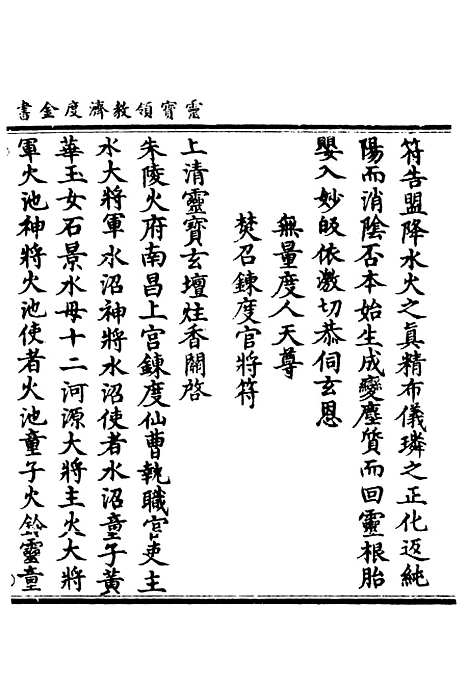 靈寶領教濟度金書
符告盟降水火之真精布儀璘之正化迈純
陽而消陰否本始生成變塵質而回靈根胎
嬰入妙皈依激切恭伺玄恩
無量度人天尊
焚召鍊度官將符
上清靈寶玄壇炷香關啓
朱陵火府南昌上宫鍊度仙曹執職官吏主
水大將軍水沼神將水沼使者水沼童子黃
華玉女石景水母十二河源大將主火大將
軍火池神將火池使者火池童子火鈴靈童